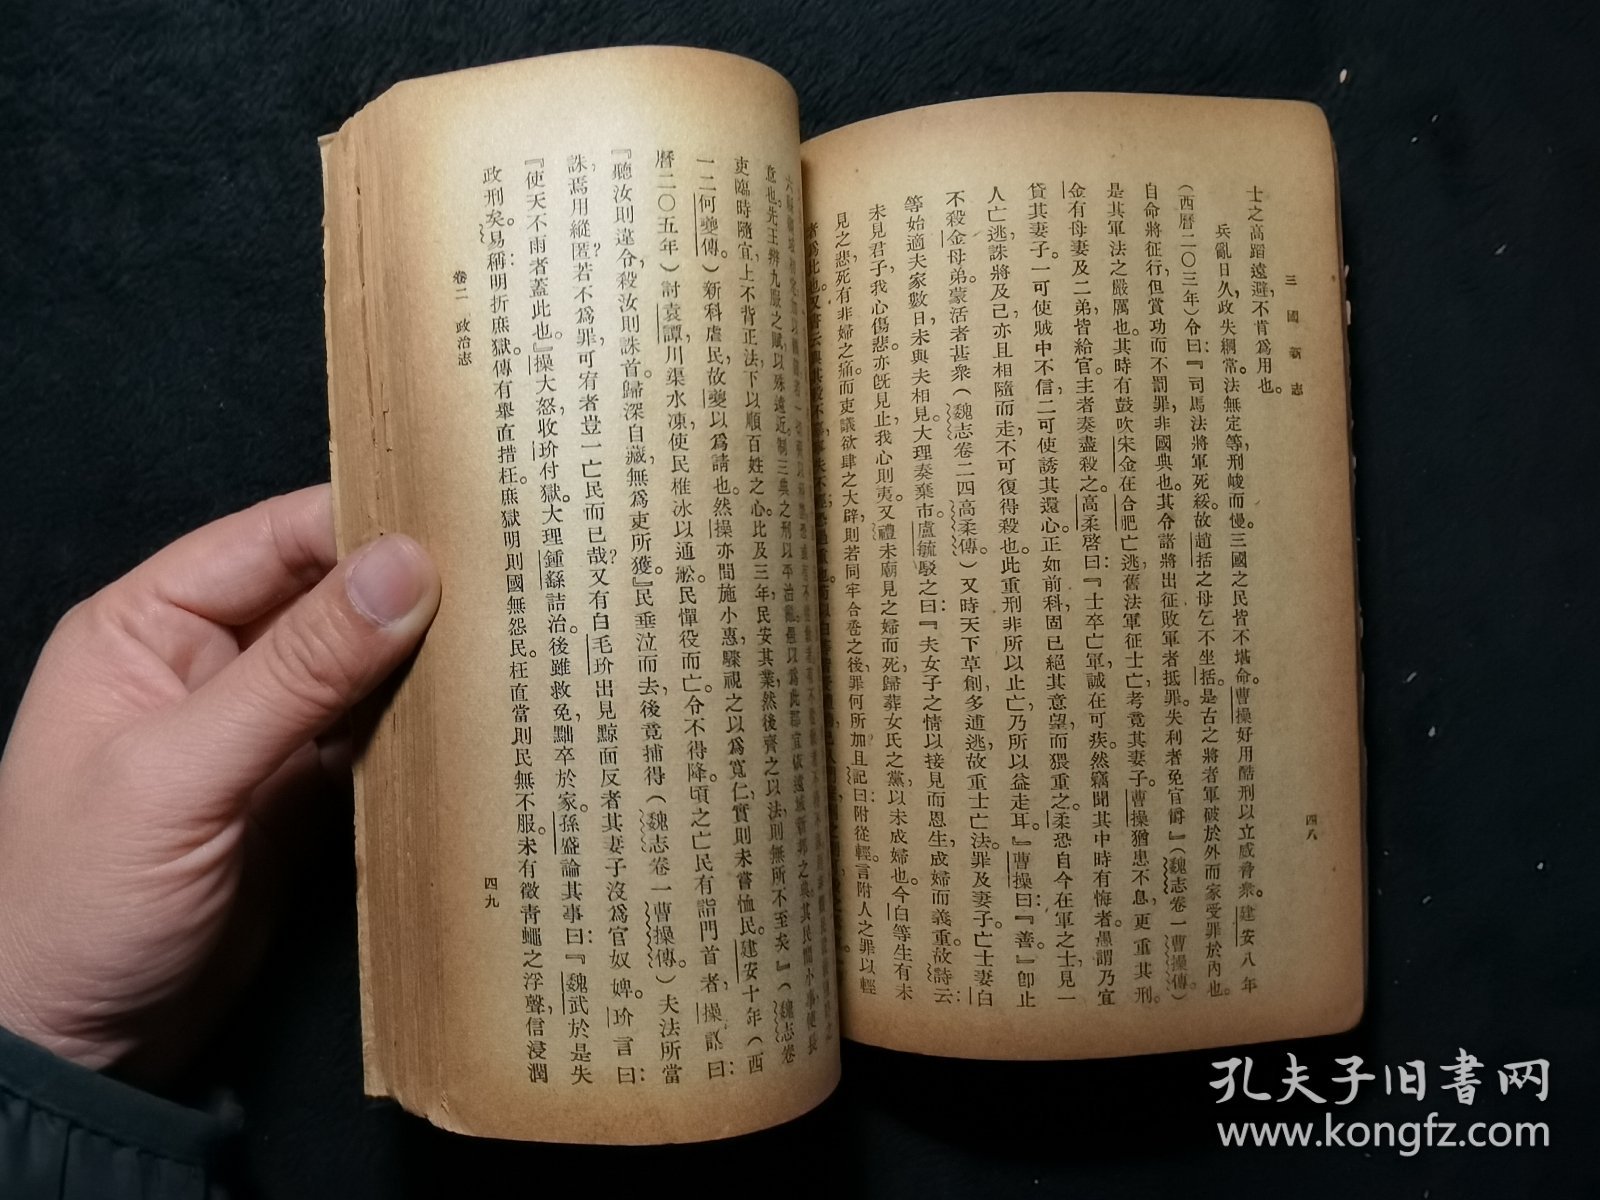 三國新志
四八
士之高蹈遠避，不肯爲用也。
兵亂日久，政失綱常。法無定等，刑峻而慢。三國之民皆不堪命。曹操好用酷刑以立威脅衆。建安八年
（西曆二〇三年）令曰：『司馬法將軍死綏。故趙括之母乞不坐括。是古之將者軍破於外而家受罪於內也。
自命將征行，但賞功而不罰罪，非國典也。其令諸將出征敗軍者抵罪。失利者免官爵。』（魏志卷一曹操傳）
是其軍法之嚴厲也。其時有鼓吹宋金在合肥亡逃。舊法軍征士亡，考竟其妻子。曹操猶患不息，更重其刑。
金有母妻及二弟皆給官。主者奏盡殺之。高柔啓曰：『士卒亡軍，誠在可疾。然竊聞其中時有悔者。愚謂乃宜
貸其妻子。一可使賊中不信，二可使誘其還心。正如前科，固已絕其意望，而猥重之。柔恐自今在軍之士，見一
人亡逃，誅將及己，亦且相隨而走，不可復得殺也。此重刑非所以止亡，乃所以益走耳。』曹操曰：『善。』卽止
不殺金母弟。蒙活者甚衆（魏志卷二四高柔傳。）又時天下草創，多逋逃，故重士亡法，罪及妻子。亡士妻白
等始適夫家數日，未與夫相見。大理奏棄市。盧毓駁之曰：『夫女子之情，以接見而恩生，成婦而義重。故詩云：
未見君子，我心傷悲。亦旣見止，我心則夷。又禮未廟見之婦而死，歸葬女氏之黨，以未成婦也。今白等生有未
見之悲，死有非婦之痛。而吏議欲肆之大辟，則若同牢合巹之後，罪何所加？且記曰：附從輕。言附人之罪以輕
者爲比也。又書云：與其殺不辜，
意也。先王辨九服之賦，以殊遠近，制三典之刑，以平治亂。
吏臨時隨宜，上不背正法，下以順百姓之心。比及三年，民安其業，然後齊之以法，則無所不至矣。』（魏志卷
一二何夔傳。）新科虐民，故夔以爲請也。然操亦間施小惠，驟視之以爲寬仁，實則未嘗恤民。建安十年（西
曆二〇五年）討袁譚，川渠水凍，使民椎冰以通船。民憚役而亡。令不得降。頃之亡民有詣門首者，操謂曰：
『聽汝則違令，殺汝則誅首。歸深自藏，無爲吏所獲。』民垂泣而去，後竟捕得（魏志卷一曹操傳。）夫法所當
誅，焉用縱匿？若不爲罪可宥者，豈一亡民而已哉？又有白毛玠出見黥面反者，其妻子沒爲官奴婢。玠言曰：
『使天不雨者蓋此也。』操大怒，收玠付獄。大理鍾繇詰治。後雖救免，黜卒於家。孫盛論其事曰：『魏武於是失
政刑矣。易稱：明折庶獄。傳有舉直措枉。庶獄明則國無怨民。枉直當則民無不服。未有徵青蠅之浮聲，信浸潤
卷二 政治志
四九
孔夫子旧書网
www.kongfz.com